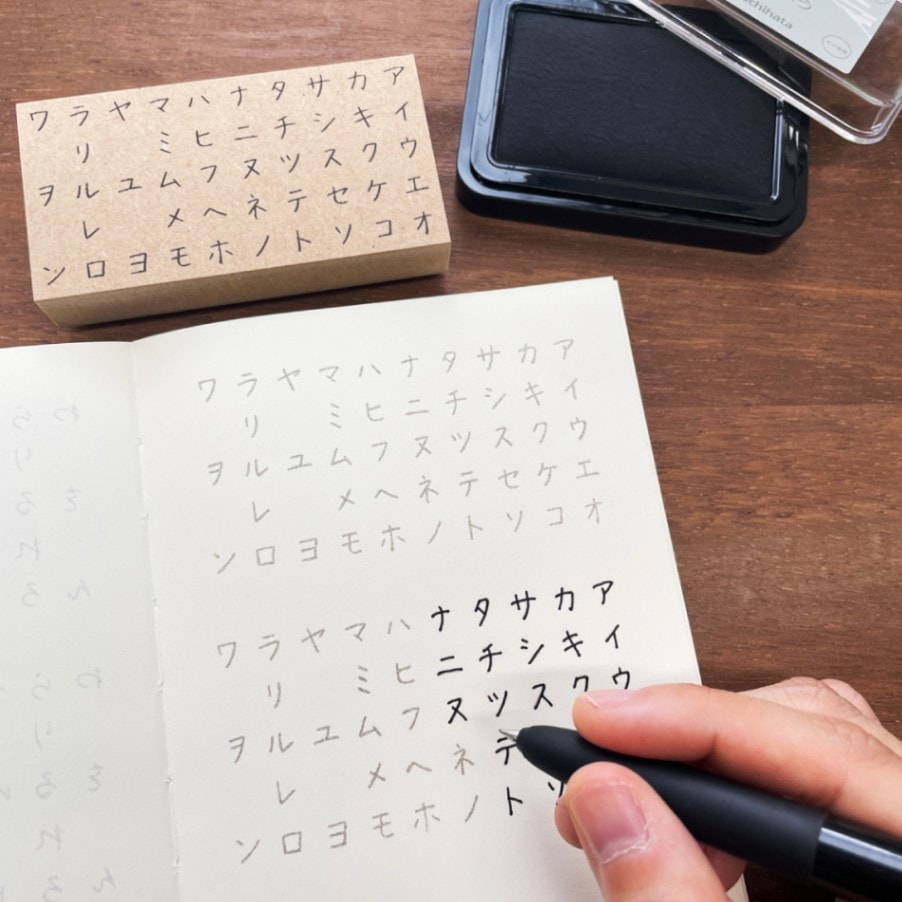 アイウエオ
カキクケコ
サシスセソ
タチツテト
ナニヌネノ
ハヒフヘホ
マミムメモ
ヤユヨ
ラリルレロ
ワヲン
アイウエオ
カキクケコ
サシスセソ
タチツテト
ナニヌネノ
ハヒフヘホ
マミムメモ
ヤユヨ
ラリルレロ
ワヲン
アイウ
カキク
サシス
タチツテト
ナニヌネノ
ハヒフヘホ
マミムメモ
ヤユヨ
ラリルレロ
ワヲン